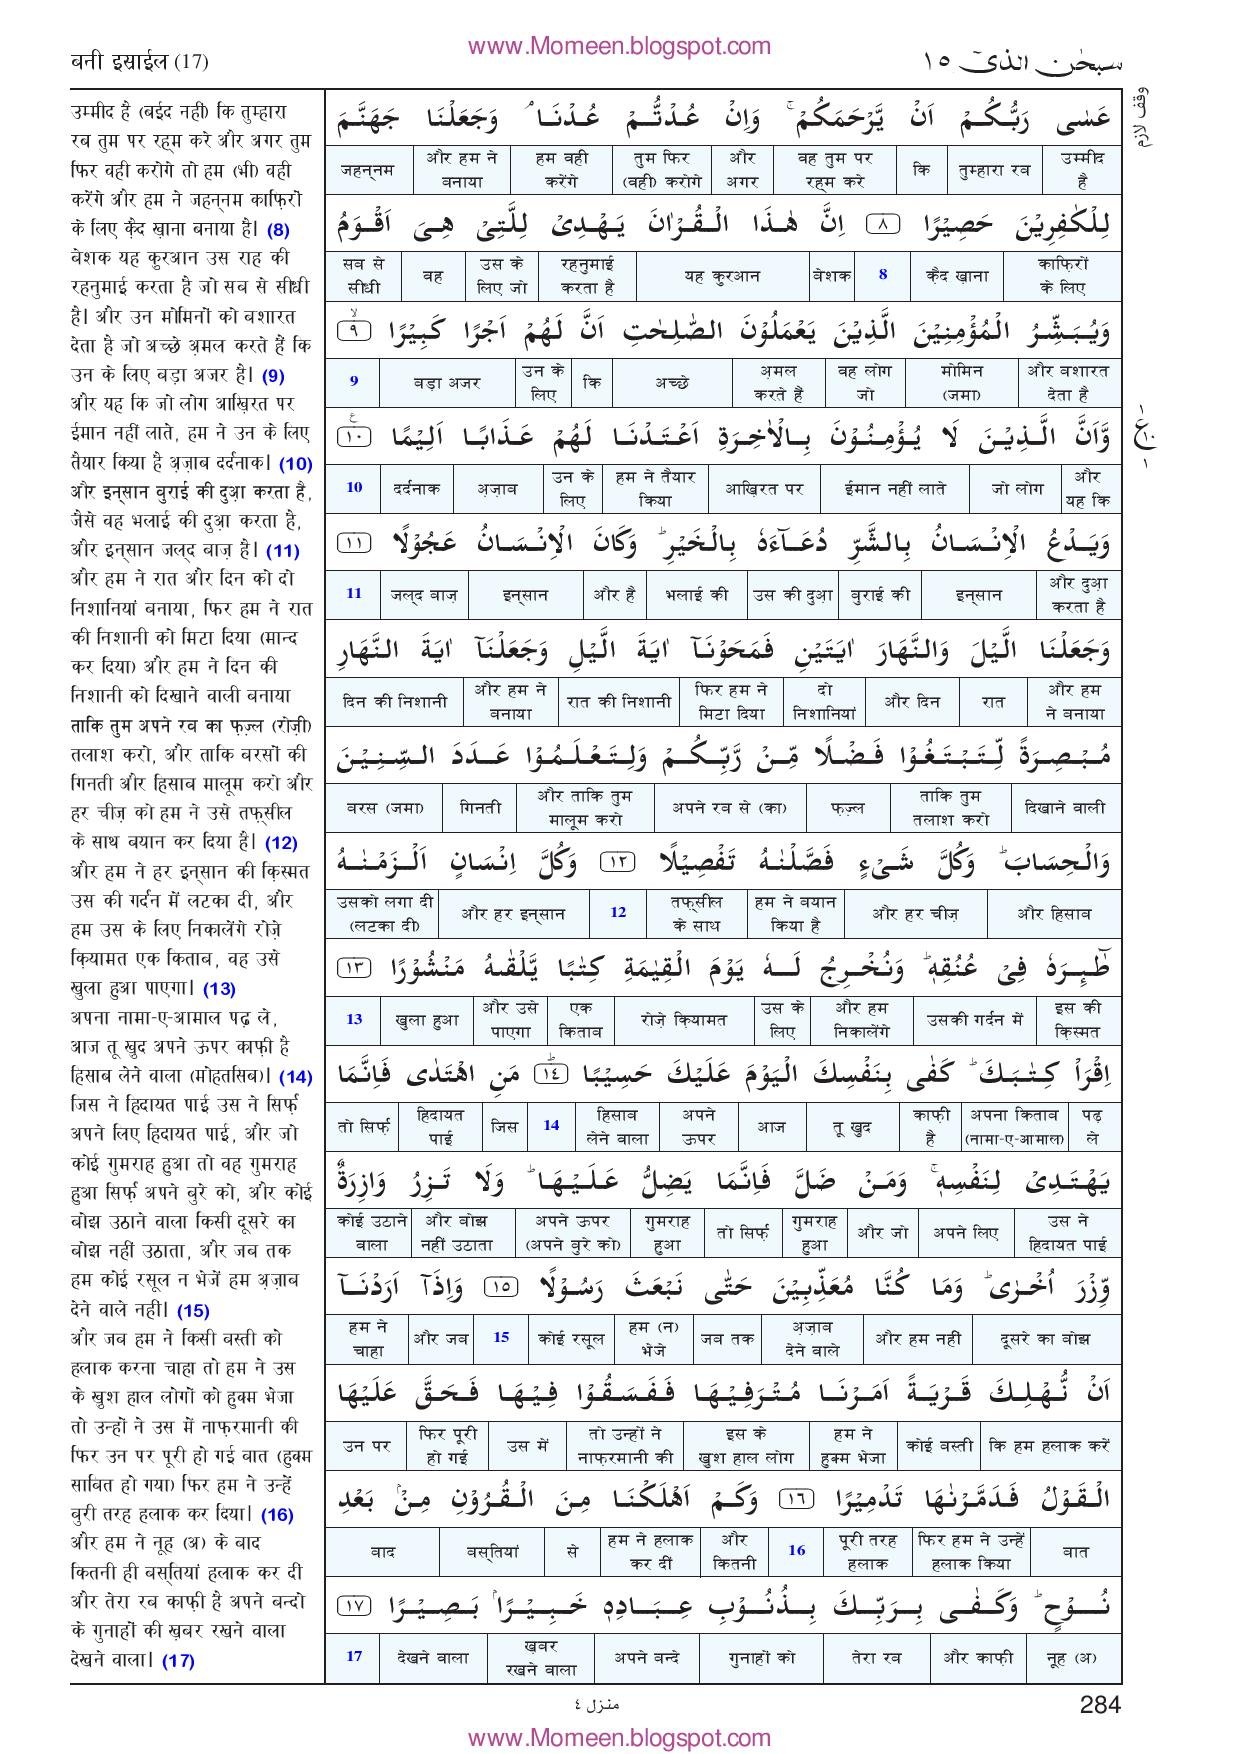 www.Momeen.blogspot.com
बनी इस्राईल (17)
سبحٰن الذی ١٥
وقف لازم
उम्मीद है (बईद नहीं) कि तुम्हारा
रब तुम पर रहम करे और अगर तुम
फिर वही करोगे तो हम (भी) वही
करेंगे और हम ने जहन्नम काफ़िरों
के लिए क़ैद ख़ाना बनाया है। (8)
बेशक यह कुरआन उस राह की
रहनुमाई करता है जो सब से सीधी
है। और उन मोमिनों को बशारत
देता है जो अच्छे अ़मल करते हैं कि
उन के लिए बड़ा अजर है। (9)
और यह कि जो लोग आख़िरत पर
ईमान नहीं लाते, हम ने उन के लिए
तैयार किया है अ़ज़ाब दर्दनाक। (10)
और इन्सान बुराई की दुआ़ करता है,
जैसे वह भलाई की दुआ़ करता है,
और इन्सान जल्द बाज़ है। (11)
और हम ने रात और दिन को दो
निशानियां बनाया, फिर हम ने रात
की निशानी को मिटा दिया (मान्द
कर दिया) और हम ने दिन की
निशानी को दिखाने वाली बनाया
ताकि तुम अपने रब का फ़ज़्ल (रोज़ी)
तलाश करो, और ताकि बरसों की
गिनती और हिसाब मालूम करो और
हर चीज़ को हम ने उसे तफ़्सील
के साथ बयान कर दिया है। (12)
और हम ने हर इन्सान की क़िस्मत
उस की गर्दन में लटका दी, और
हम उस के लिए निकालेंगे रोज़े
क़ियामत एक किताब, वह उसे
खुला हुआ पाएगा। (13)
अपना नामा-ए-आमाल पढ़ ले,
आज तू खुद अपने ऊपर काफ़ी है
हिसाब लेने वाला (मोहतसिब)। (14)
जिस ने हिदायत पाई उस ने सिर्फ़
अपने लिए हिदायत पाई, और जो
कोई गुमराह हुआ तो वह गुमराह
हुआ सिर्फ़ अपने बुरे को, और कोई
बोझ उठाने वाला किसी दूसरे का
बोझ नहीं उठाता, और जब तक
हम कोई रसूल न भेजें हम अ़ज़ाब
देने वाले नहीं। (15)
और जब हम ने किसी बस्ती को
हलाक करना चाहा तो हम ने उस
के खुश हाल लोगों को हुक्म भेजा
तो उन्हों ने उस में नाफ़रमानी की
फिर उन पर पूरी हो गई बात (हुक्म
साबित हो गया) फिर हम ने उन्हें
बुरी तरह हलाक कर दिया। (16)
और हम ने नूह (अ) के बाद
कितनी ही बस्तियां हलाक कर दीं
और तेरा रब काफ़ी है अपने बन्दों
के गुनाहों की ख़बर रखने वाला
देखने वाला। (17)
عَسٰی رَبُّكُمْ اَنْ یَّرْحَمَكُمْ ۚ وَاِنْ عُدْتُّمْ عُدْنَا ۘ وَجَعَلْنَا جَهَنَّمَ
उम्मीद है | तुम्हारा रब | कि | वह तुम पर रहम करे | और अगर | तुम फिर (वही) करोगे | हम वही करेंगे | और हम ने बनाया | जहन्नम
لِلْكٰفِرِیْنَ حَصِیْرًا ٨ اِنَّ هٰذَا الْقُرْاٰنَ یَهْدِیْ لِلَّتِیْ هِیَ اَقْوَمُ
काफ़िरों के लिए | क़ैद ख़ाना | 8 | बेशक | यह कुरआन | रहनुमाई करता है | उस के लिए जो | वह | सब से सीधी
وَیُبَشِّرُ الْمُؤْمِنِیْنَ الَّذِیْنَ یَعْمَلُوْنَ الصّٰلِحٰتِ اَنَّ لَهُمْ اَجْرًا كَبِیْرًا ۙ ٩
और बशारत देता है | मोमिन (जमा) | वह लोग जो | अ़मल करते हैं | अच्छे | कि | उन के लिए | बड़ा अजर | 9
وَّاَنَّ الَّذِیْنَ لَا یُؤْمِنُوْنَ بِالْاٰخِرَةِ اَعْتَدْنَا لَهُمْ عَذَابًا اَلِیْمًا ١٠ ع
١
ع ١٠
١
और यह कि | जो लोग | ईमान नहीं लाते | आख़िरत पर | हम ने तैयार किया | उन के लिए | अ़ज़ाब | दर्दनाक | 10
وَیَدْعُ الْاِنْسَانُ بِالشَّرِّ دُعَآءَهٗ بِالْخَیْرِ ؕ وَكَانَ الْاِنْسَانُ عَجُوْلًا ١١
और दुआ़ करता है | इन्सान | बुराई की | उस की दुआ़ | भलाई की | और है | इन्सान | जल्द बाज़ | 11
وَجَعَلْنَا الَّیْلَ وَالنَّهَارَ اٰیَتَیْنِ فَمَحَوْنَآ اٰیَةَ الَّیْلِ وَجَعَلْنَآ اٰیَةَ النَّهَارِ
और हम ने बनाया | रात | और दिन | दो निशानियां | फिर हम ने मिटा दिया | रात की निशानी | और हम ने बनाया | दिन की निशानी
مُبْصِرَةً لِّتَبْتَغُوْا فَضْلًا مِّنْ رَّبِّكُمْ وَلِتَعْلَمُوْا عَدَدَ السِّنِیْنَ
दिखाने वाली | ताकि तुम तलाश करो | फ़ज़्ल | अपने रब से (का) | और ताकि तुम मालूम करो | गिनती | बरस (जमा)
وَالْحِسَابَ ؕ وَكُلَّ شَیْءٍ فَصَّلْنٰهُ تَفْصِیْلًا ١٢ وَكُلَّ اِنْسَانٍ اَلْزَمْنٰهُ
और हिसाब | और हर चीज़ | हम ने बयान किया है | तफ़्सील के साथ | 12 | और हर इन्सान | उसको लगा दी (लटका दी)
طٰٓىِٕرَهٗ فِیْ عُنُقِهٖ ؕ وَنُخْرِجُ لَهٗ یَوْمَ الْقِیٰمَةِ كِتٰبًا یَّلْقٰىهُ مَنْشُوْرًا ١٣
इस की क़िस्मत | उसकी गर्दन में | और हम निकालेंगे | उस के लिए | रोज़े क़ियामत | एक किताब | और उसे पाएगा | खुला हुआ | 13
اِقْرَاْ كِتٰبَكَ ؕ كَفٰی بِنَفْسِكَ الْیَوْمَ عَلَیْكَ حَسِیْبًا ؕ ١٤ مَنِ اهْتَدٰی فَاِنَّمَا
पढ़ ले | अपना किताब (नामा-ए-आमाल) | काफ़ी है | तू खुद | आज | अपने ऊपर | हिसाब लेने वाला | 14 | जिस | हिदायत पाई | तो सिर्फ़
یَهْتَدِیْ لِنَفْسِهٖ ۚ وَمَنْ ضَلَّ فَاِنَّمَا یَضِلُّ عَلَیْهَا ؕ وَلَا تَزِرُ وَازِرَةٌ
उस ने हिदायत पाई | अपने लिए | और जो | गुमराह हुआ | तो सिर्फ़ | गुमराह हुआ | अपने ऊपर (अपने बुरे को) | और बोझ नहीं उठाता | कोई उठाने वाला
وِّزْرَ اُخْرٰی ؕ وَمَا كُنَّا مُعَذِّبِیْنَ حَتّٰی نَبْعَثَ رَسُوْلًا ١٥ وَاِذَاۤ اَرَدْنَاۤ
दूसरे का बोझ | और हम नहीं | अ़ज़ाब देने वाले | जब तक | हम (न) भेजें | कोई रसूल | 15 | और जब | हम ने चाहा
اَنْ نُّهْلِكَ قَرْیَةً اَمَرْنَا مُتْرَفِیْهَا فَفَسَقُوْا فِیْهَا فَحَقَّ عَلَیْهَا
कि हम हलाक करें | कोई बस्ती | हम ने हुक्म भेजा | इस के खुश हाल लोग | तो उन्हों ने नाफ़रमानी की | उस में | फिर पूरी हो गई | उन पर
الْقَوْلُ فَدَمَّرْنٰهَا تَدْمِیْرًا ١٦ وَكَمْ اَهْلَكْنَا مِنَ الْقُرُوْنِ مِنْۢ بَعْدِ
बात | फिर हम ने उन्हें हलाक किया | पूरी तरह हलाक | 16 | और कितनी | हम ने हलाक कर दीं | से | बस्तियां | बाद
نُوْحٍ ؕ وَكَفٰی بِرَبِّكَ بِذُنُوْبِ عِبَادِهٖ خَبِیْرًۢا بَصِیْرًا ١٧
नूह (अ) | और काफ़ी | तेरा रब | गुनाहों को | अपने बन्दे | ख़बर रखने वाला | देखने वाला | 17
منزل ٤
284
www.Momeen.blogspot.com